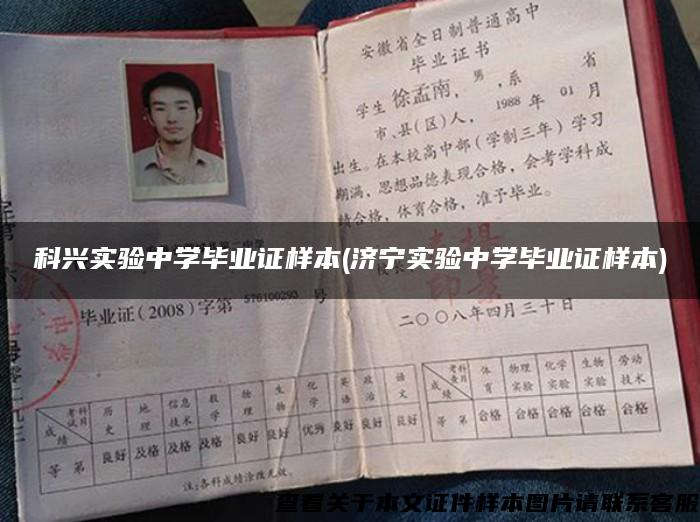 安徽省全日制普通高中
毕业证书
学生 徐孟南，男，系 省
市、县（区）人， 1988 年 01 月
出生。在本校高中部（学制三年）学习
期满，思想品德表现合格，会考学科成
绩合格，体育合格，准予毕业。
科兴实验中学毕业证样本(济宁实验中学毕业证样本)
毕业证(2008)字第 576100293 号
二〇〇八年四月三十日
考试科目 历史 地理 信息技术 数学 物理 生物 化学 英语 政治 语文
成绩
等第 良好 及格 及格 及格 良好 良好 优秀 良好 良好 良好
注:各科成绩涂改无效。
考查科目 体育 物理实验 化学实验 生物实验 劳动技术
成绩
等第 合格 合格 合格 合格 合格
查看关于本文证件样本图片请联系客服